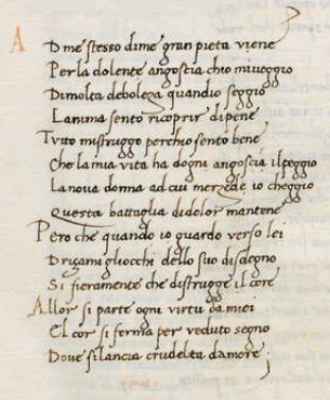 AD me stesso dime gran pieta viene
Per la dolente angoscia chio miveggio
Dimolta deboleza quandio seggio
Lanima sento ricoprir dipene
Tutto mistruggo perchio sento bene
Che la mia vita ha dogni angoscia il peggio
La nova donna ad cui merzede io cheggio
Questa battaglia didolor mantene
Pero che quando io guardo verso lei
Drizami gliocchi dello suo disdegno
Si fieramente che distrugge il core
Allor si parte ogni virtu da miei
El cor si ferma per veduto segno
Dove silancia crudelta damore